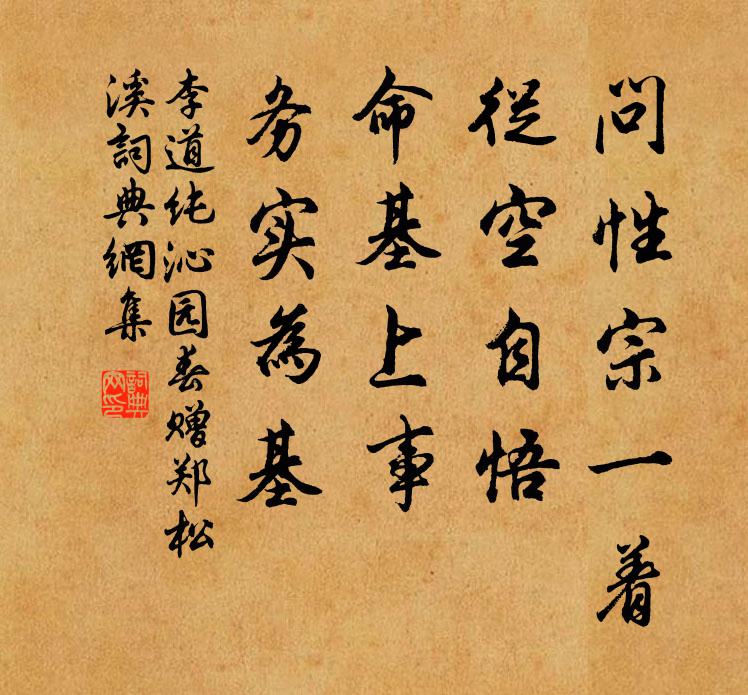 问性宗一着
從空自悟
命基上事
务实為基
李道纯沁园春赠郑松
溪詞典網集
詞典
网印